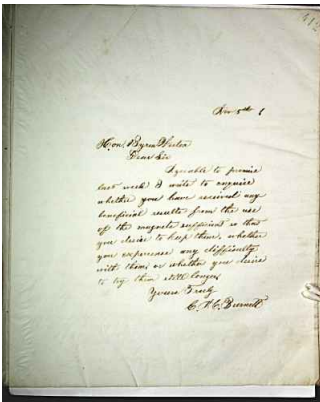 412
Dec 5th
Hon. Byron Weston
Dear Sir
Agreeable to promise
last week I write to enquire
whether you have received any
beneficial results from the use
of the magnets sufficient so that
you desire to keep them, whether
you experience any difficulty
with them, or whether you desire
to try them still longer.
Yours Truly
Burnett